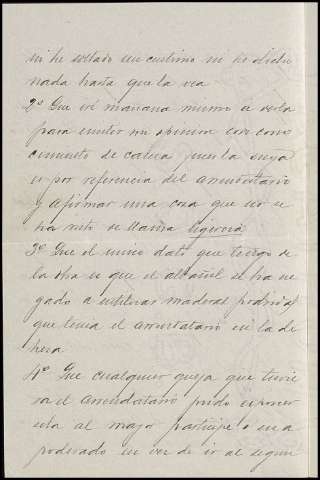 ni he soltado un cuartimo ni he dicho
nada hasta que la vea
2º Que iré mañana mismo a verla
para emitir mi opinion con cono
cimiento de causa pues la suya
es por referencia del arrendatario
y afirmar una cosa que no se
ha visto se llama ligereza
3º Que el unico dato que tengo de
la obra es que el albañil se ha ne
gado a utilizar maderas podridas
que tenia el arrendatario en la de
hesa
4º Que cualquier queja que tuvie
ra el arrendatario pudo exponer
sela al mayor participe o su a
poderado en vez de ir al segun